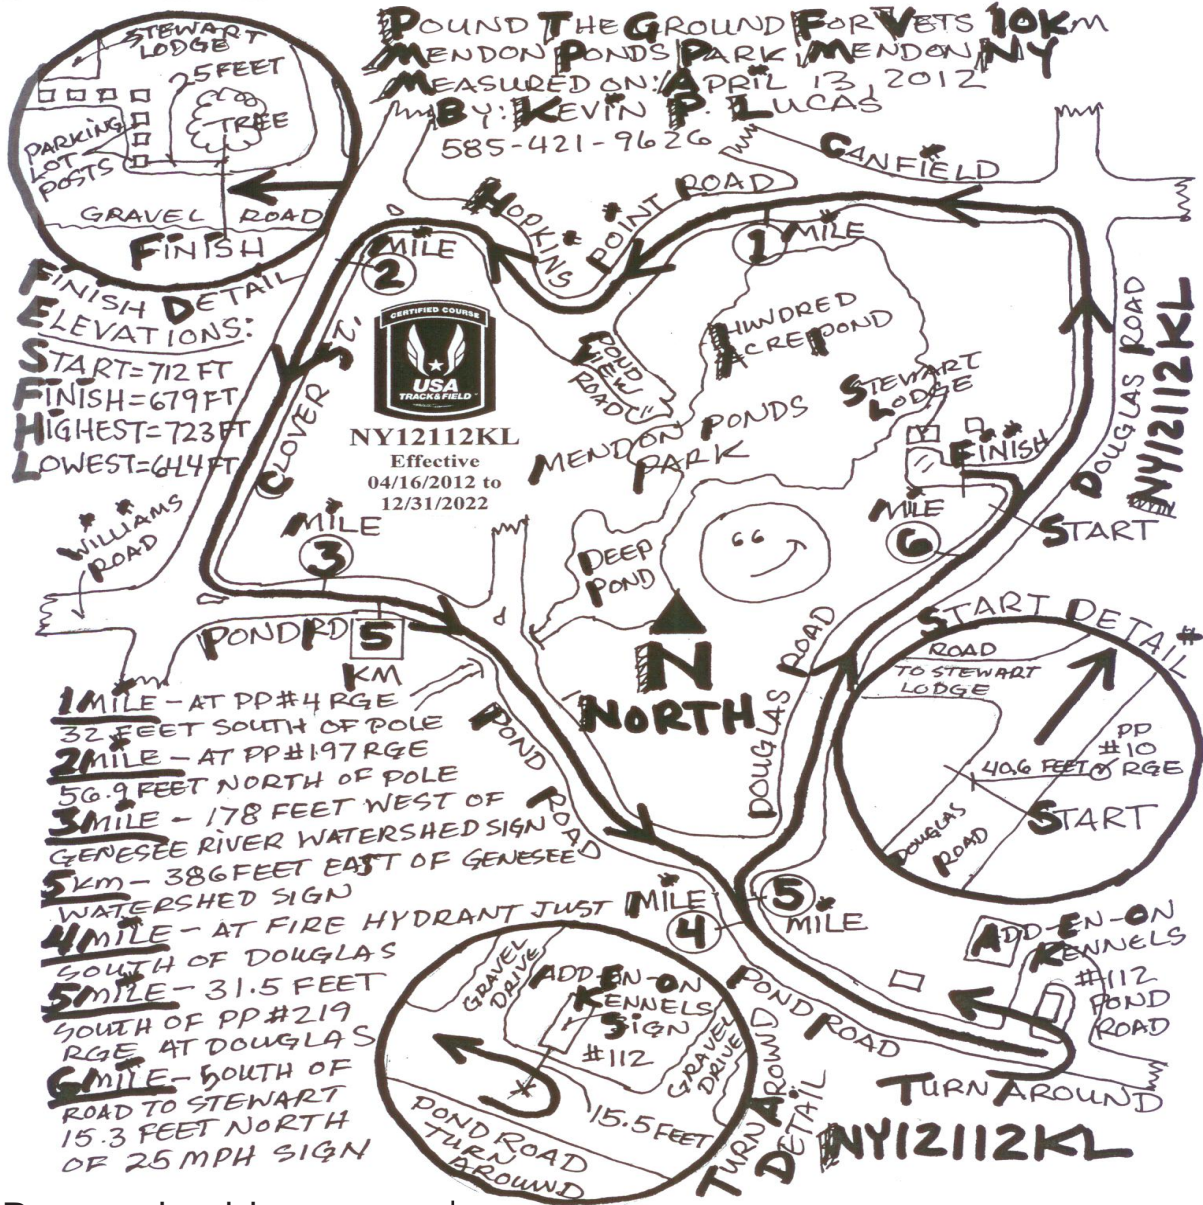 POUND THE GROUND FOR VETS 10KM
MENDON PONDS PARK, MENDON NY
MEASURED ON: APRIL 13, 2012
BY: KEVIN P. LUCAS
585-421-9626
STEWART
LODGE
25 FEET
TREE
PARKING
LOT
POSTS
GRAVEL ROAD
FINISH
FINISH DETAIL
ELEVATIONS:
START=712 FT
FINISH=679FT
HIGHEST=723FT
LOWEST=644FT
CANFIELD
ROAD
HOPKINS
POINT
1 MILE
MILE
2
CLOVER ST.
CERTIFIED COURSE
USA
TRACK&FIELD
NY12112KL
Effective
04/16/2012 to
12/31/2022
POND
VIEW
ROAD
HUNDRED
ACRE POND
STEWART
LODGE
MENDON PONDS
PARK
FINISH
DOUGLAS ROAD
NY12112KL
START
MILE
6
WILLIAMS
ROAD
MILE
3
DEEP
POND
POND RD
5
KM
N
NORTH
DOUGLAS ROAD
POND ROAD
START DETAIL
ROAD
TO STEWART
LODGE
PP
#10
RGE
40.6 FEET
START
DOUGLAS
ROAD
1 MILE - AT PP#4 RGE
32 FEET SOUTH OF POLE
2 MILE - AT PP#197 RGE
56.9 FEET NORTH OF POLE
3 MILE - 178 FEET WEST OF
GENESEE RIVER WATERSHED SIGN
5 KM - 386 FEET EAST OF GENESEE
WATERSHED SIGN
4 MILE - AT FIRE HYDRANT JUST
SOUTH OF DOUGLAS
5 MILE - 31.5 FEET
SOUTH OF PP#219
RGE AT DOUGLAS
6 MILE - SOUTH OF
ROAD TO STEWART
15.3 FEET NORTH
OF 25 MPH SIGN
MILE
4
5
MILE
POND ROAD
ADD-EN-ON
KENNELS
#112
POND
ROAD
TURN AROUND
GRAVEL
DRIVE
ADD-EN-ON
KENNELS
SIGN
#112
GRAVEL
DRIVE
15.5 FEET
POND ROAD
TURN
AROUND
TURN AROUND
DETAIL
NY12112KL